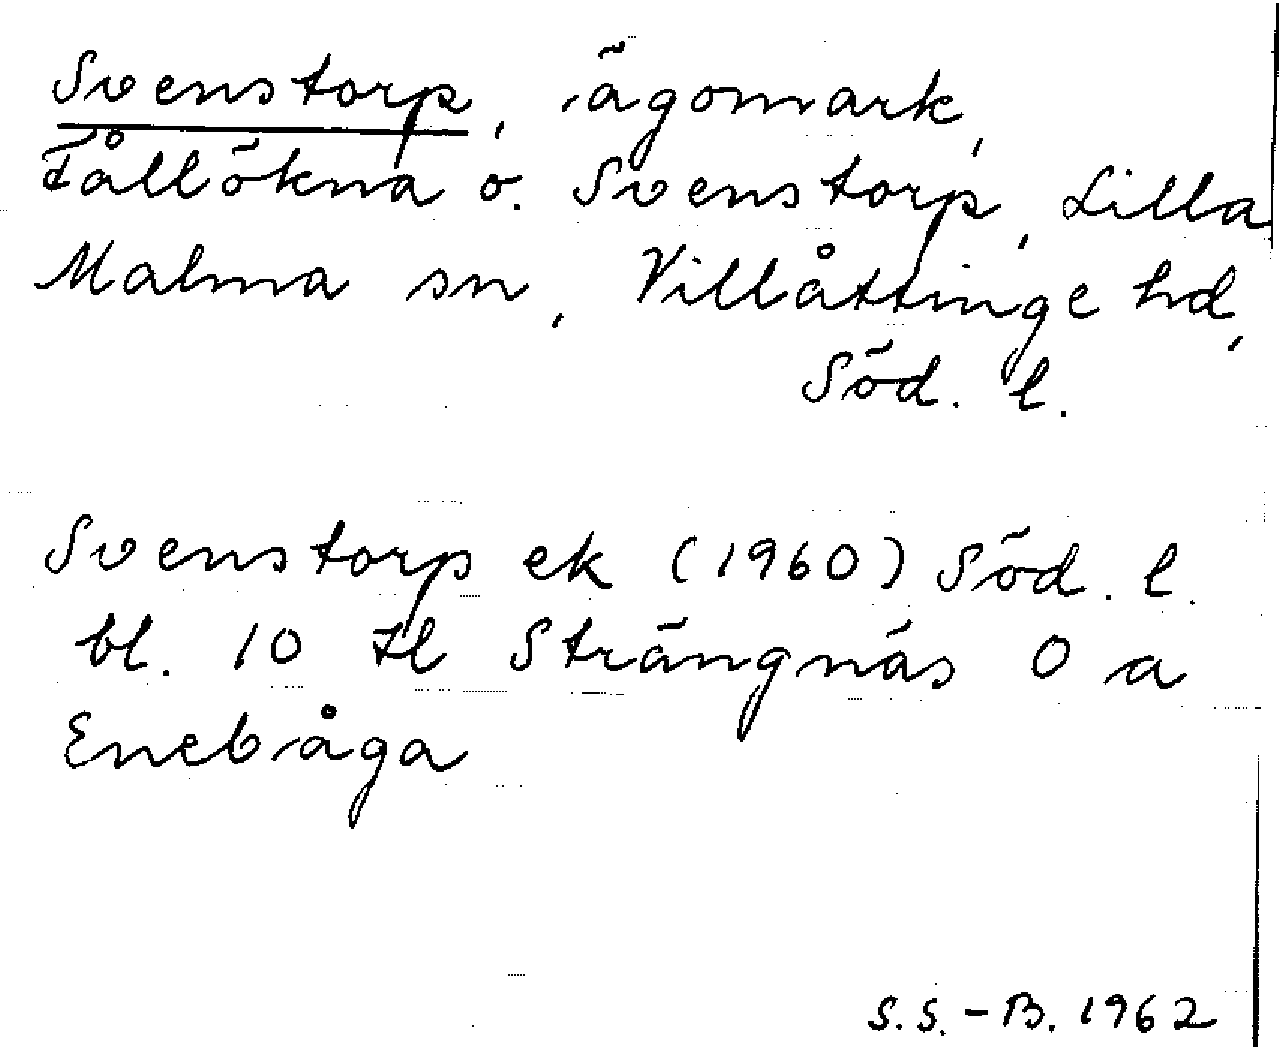 Svenstorp, ägomark,
Fållökna o. Svenstorp, Lilla
Malma sn, Villåttinge hd,
Söd. l.
Svenstorp ek (1960) Söd. l.
bl. 10 tl Strängnäs O a
Enebåga
S.S.-B. 1962